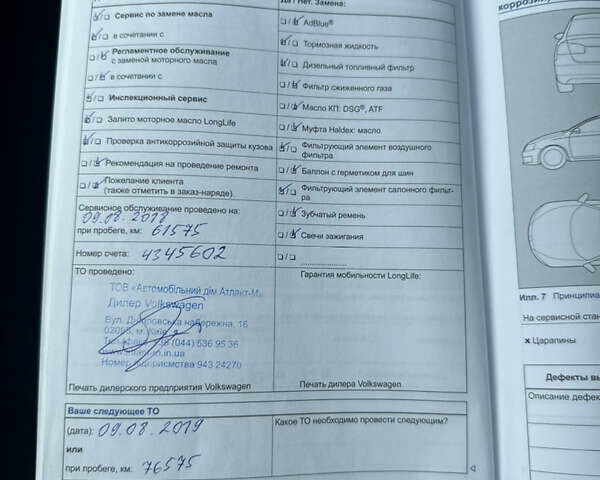 Да / Нет. Замена:
Сервис по замене масла
в сочетании с
Регламентное обслуживание
с заменой моторного масла
в сочетании с
Инспекционный сервис
Залито моторное масло LongLife
Проверка антикоррозийной защиты кузова
Рекомендация на проведение ремонта
Пожелание клиента
(также отметить в заказ-наряде).
AdBlue®
Тормозная жидкость
Дизельный топливный фильтр
Фильтр сжиженного газа
Масло КП: DSG®, ATF
Муфта Haldex: масло
Фильтрующий элемент воздушного
фильтра
Баллон с герметиком для шин
Фильтрующий элемент салонного фильт-
ра
Зубчатый ремень
Свечи зажигания
Сервисное обслуживание проведено на:
09.08.2018
при пробеге, км: 61575
Номер счета: 4345602
ТО проведено:
ТОВ «Автомобільний дім Атлант-М»
Дилер Volkswagen
набережна, 16
(044) 536 95 36
943 24270
Печать дилерского предприятия Volkswagen
Гарантия мобильности LongLife:
Печать дилера Volkswagen
Ваше следующее ТО
(дата): 09.08.2019
или
при пробеге, км: 76575
Какое ТО необходимо провести следующим?
Илл. 7
На сервисной
x Царапины
Дефекты
Описание